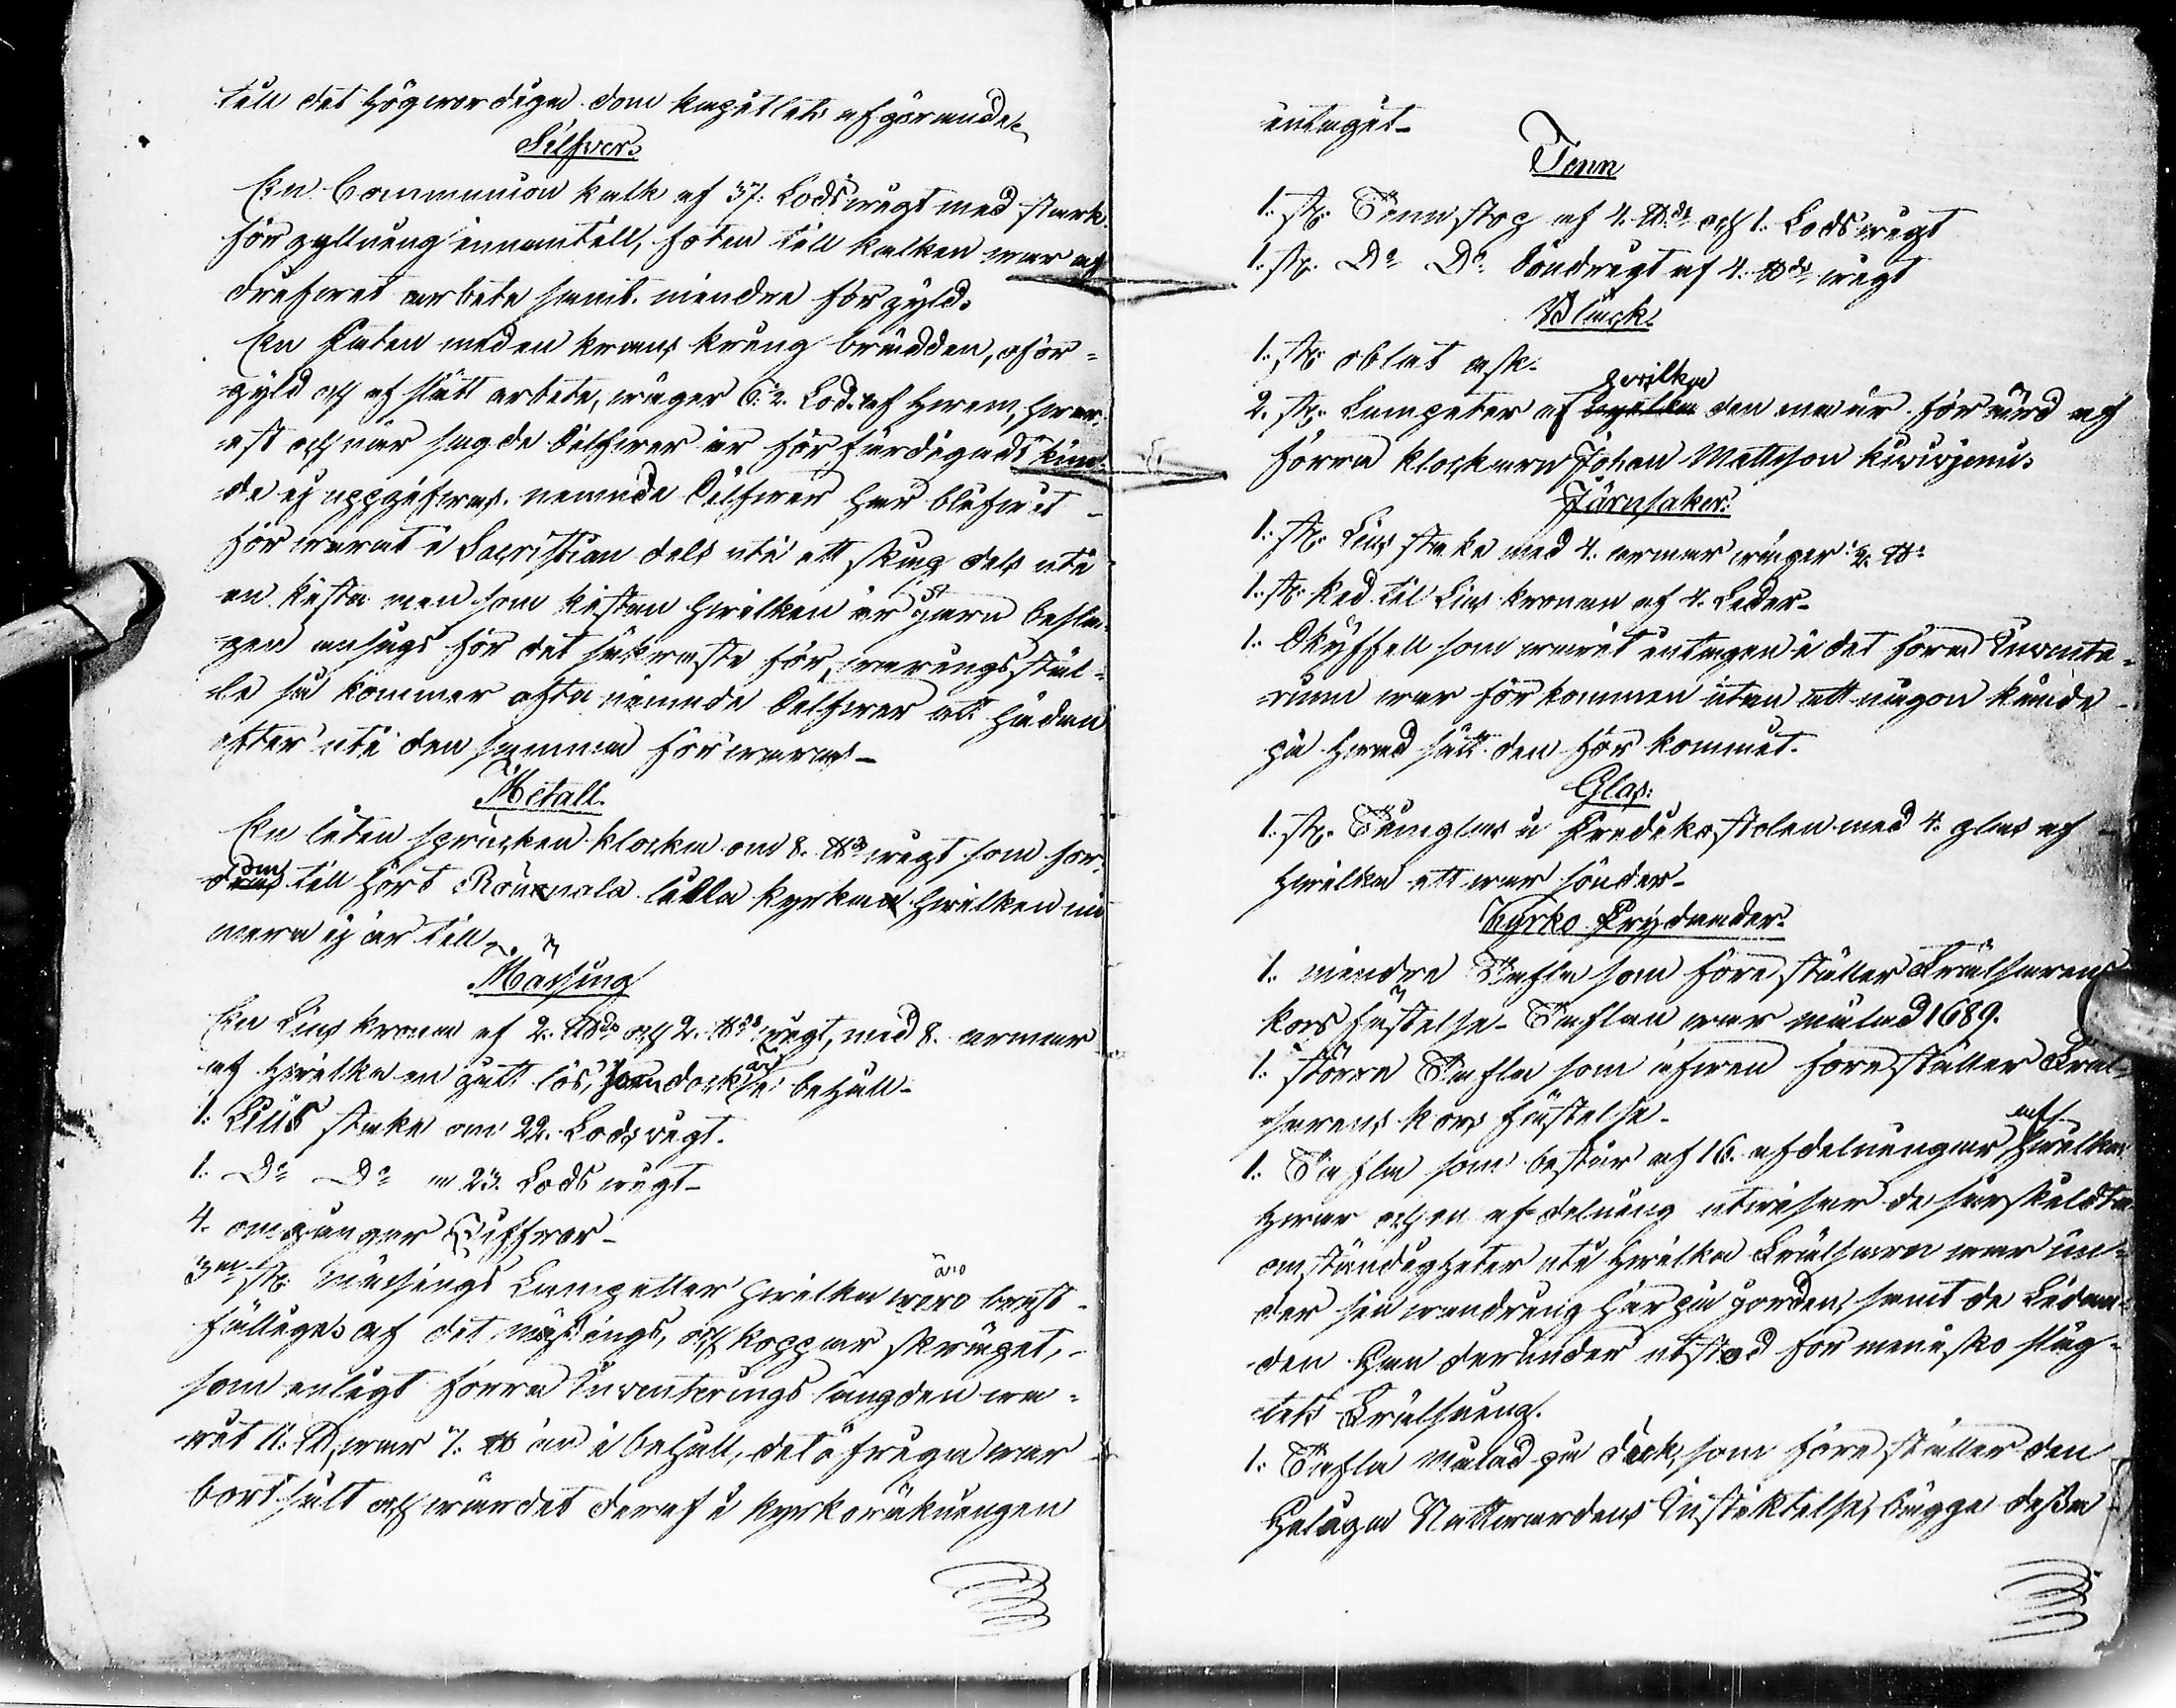 till det högwordiga dom kapitlets afgörande
Silfwer.
En Communion kalk af 37. Lods wigt med stark
förgyllning innantill, foten till kalken war af
drifwet arbete samt mindre förgyld.
En Paten med en krans kring brädden, oför-
gyld och af slätt arbete, wäger 6 1/2. Lod. af hwem, hwar-
est och när sagde Silfwer är förfärdigadt kun-
de ej uppgifwas. nemnde Silfwer har blifwit
förwarat i Sacristian dels uti ett skåp dels uti
en kista men som kistan hwilken är järn besla-
gen ansågs för det säkraste förwaringsstäl-
le så kommer ofta nämnde Silfwer att hädan
efter uti den samma förwaras -
Metall.
En liten sprucken klocka om 8. wigt som for-
dom till hört Rounala lilla kyrka hwilken nu
mera ej är till
Mässing
En Lius krona af 2. och 2. wigt, med 8. armar
af hwilka en gått lös, dock är i behåll -
1. Lius stake om 22. Lods wigt.
1. Do Do " 23. Lods wigt -
4. omgångar Siffror -
3ne st. mässings Lampetter hwilka äro bräck-
fällige. af det mässings, och koppar skräpet,
som enligt förra Inventerings längden wa-
rit 11. war 7. än i behåll, det öfriga war
bort sålt och wärdet deraf i kyrkoräkningen
intaget -
Tenn
1. st. Tennstop af 4. och 1. Lods wigt
1. st. Do Do Söndrigt af 4. wigt
Bläck.
1. st. oblat ask.
2. st. Lampeter af hwilka den ena är förärad af
förra klockaren Johan Mattsson
Järnsaker.
1. st. Lius stake med 4. armar wäger 1/2.
1. st. ked til Lius kronan af 4. Leder -
1. Skyffell som warit intagen i det förra Inventa-
rium war förkommen utan att någon kunde
på hwad sätt den förkommit.
Glas:
1. st. Timglas å Predikostolen med 4. glas af
hwilka ett war sönder -
Kyrko Prydnader.
1. mindre Tafla som föreställer Frälsarens
korsfästelse - Taflan war målad 1689.
1. större Tafla som äfwen föreställer Fräl-
sarens korsfästelse -
1. Tafla som består af 16. afdelningar af hwilka
hwar och en afdelning utwisar de särskildta
omständigheter uti hwilka Frälsaren war un-
der sin wandring här på jorden, samt de Lidan-
den Han derunder utstod för menisko släg-
tets Frälsning.
1. Tafla målad på duk, som föreställer den
Heliga Nattwardens Instiktelse, bägge dessa